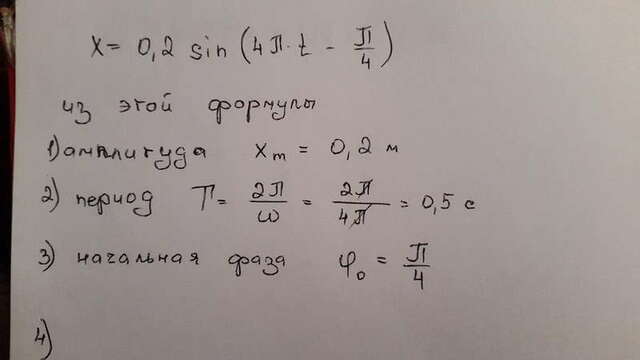 x = 0,2 sin (4π·t - π/4)
из этой формулы
1) амплитуда xm = 0,2 м
2) период T = 2π/ω = 2π/4π = 0,5 с
3) начальная фаза φ₀ = π/4
4)